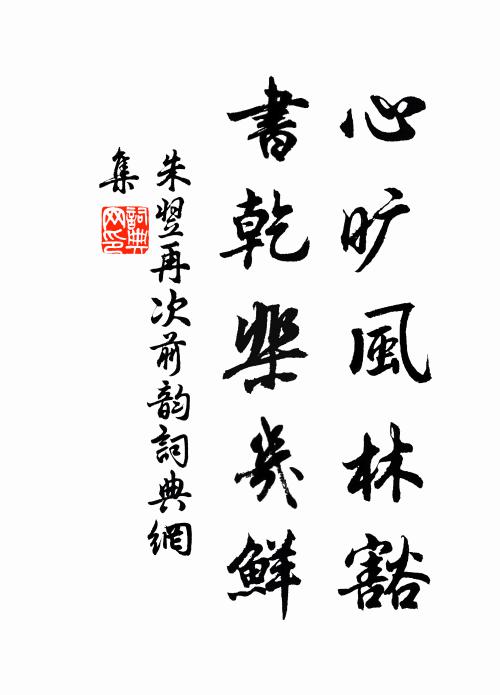 心旷風林豁
書乾棐幾鮮
朱翌再次前韵詞典網
集
詞典
网印